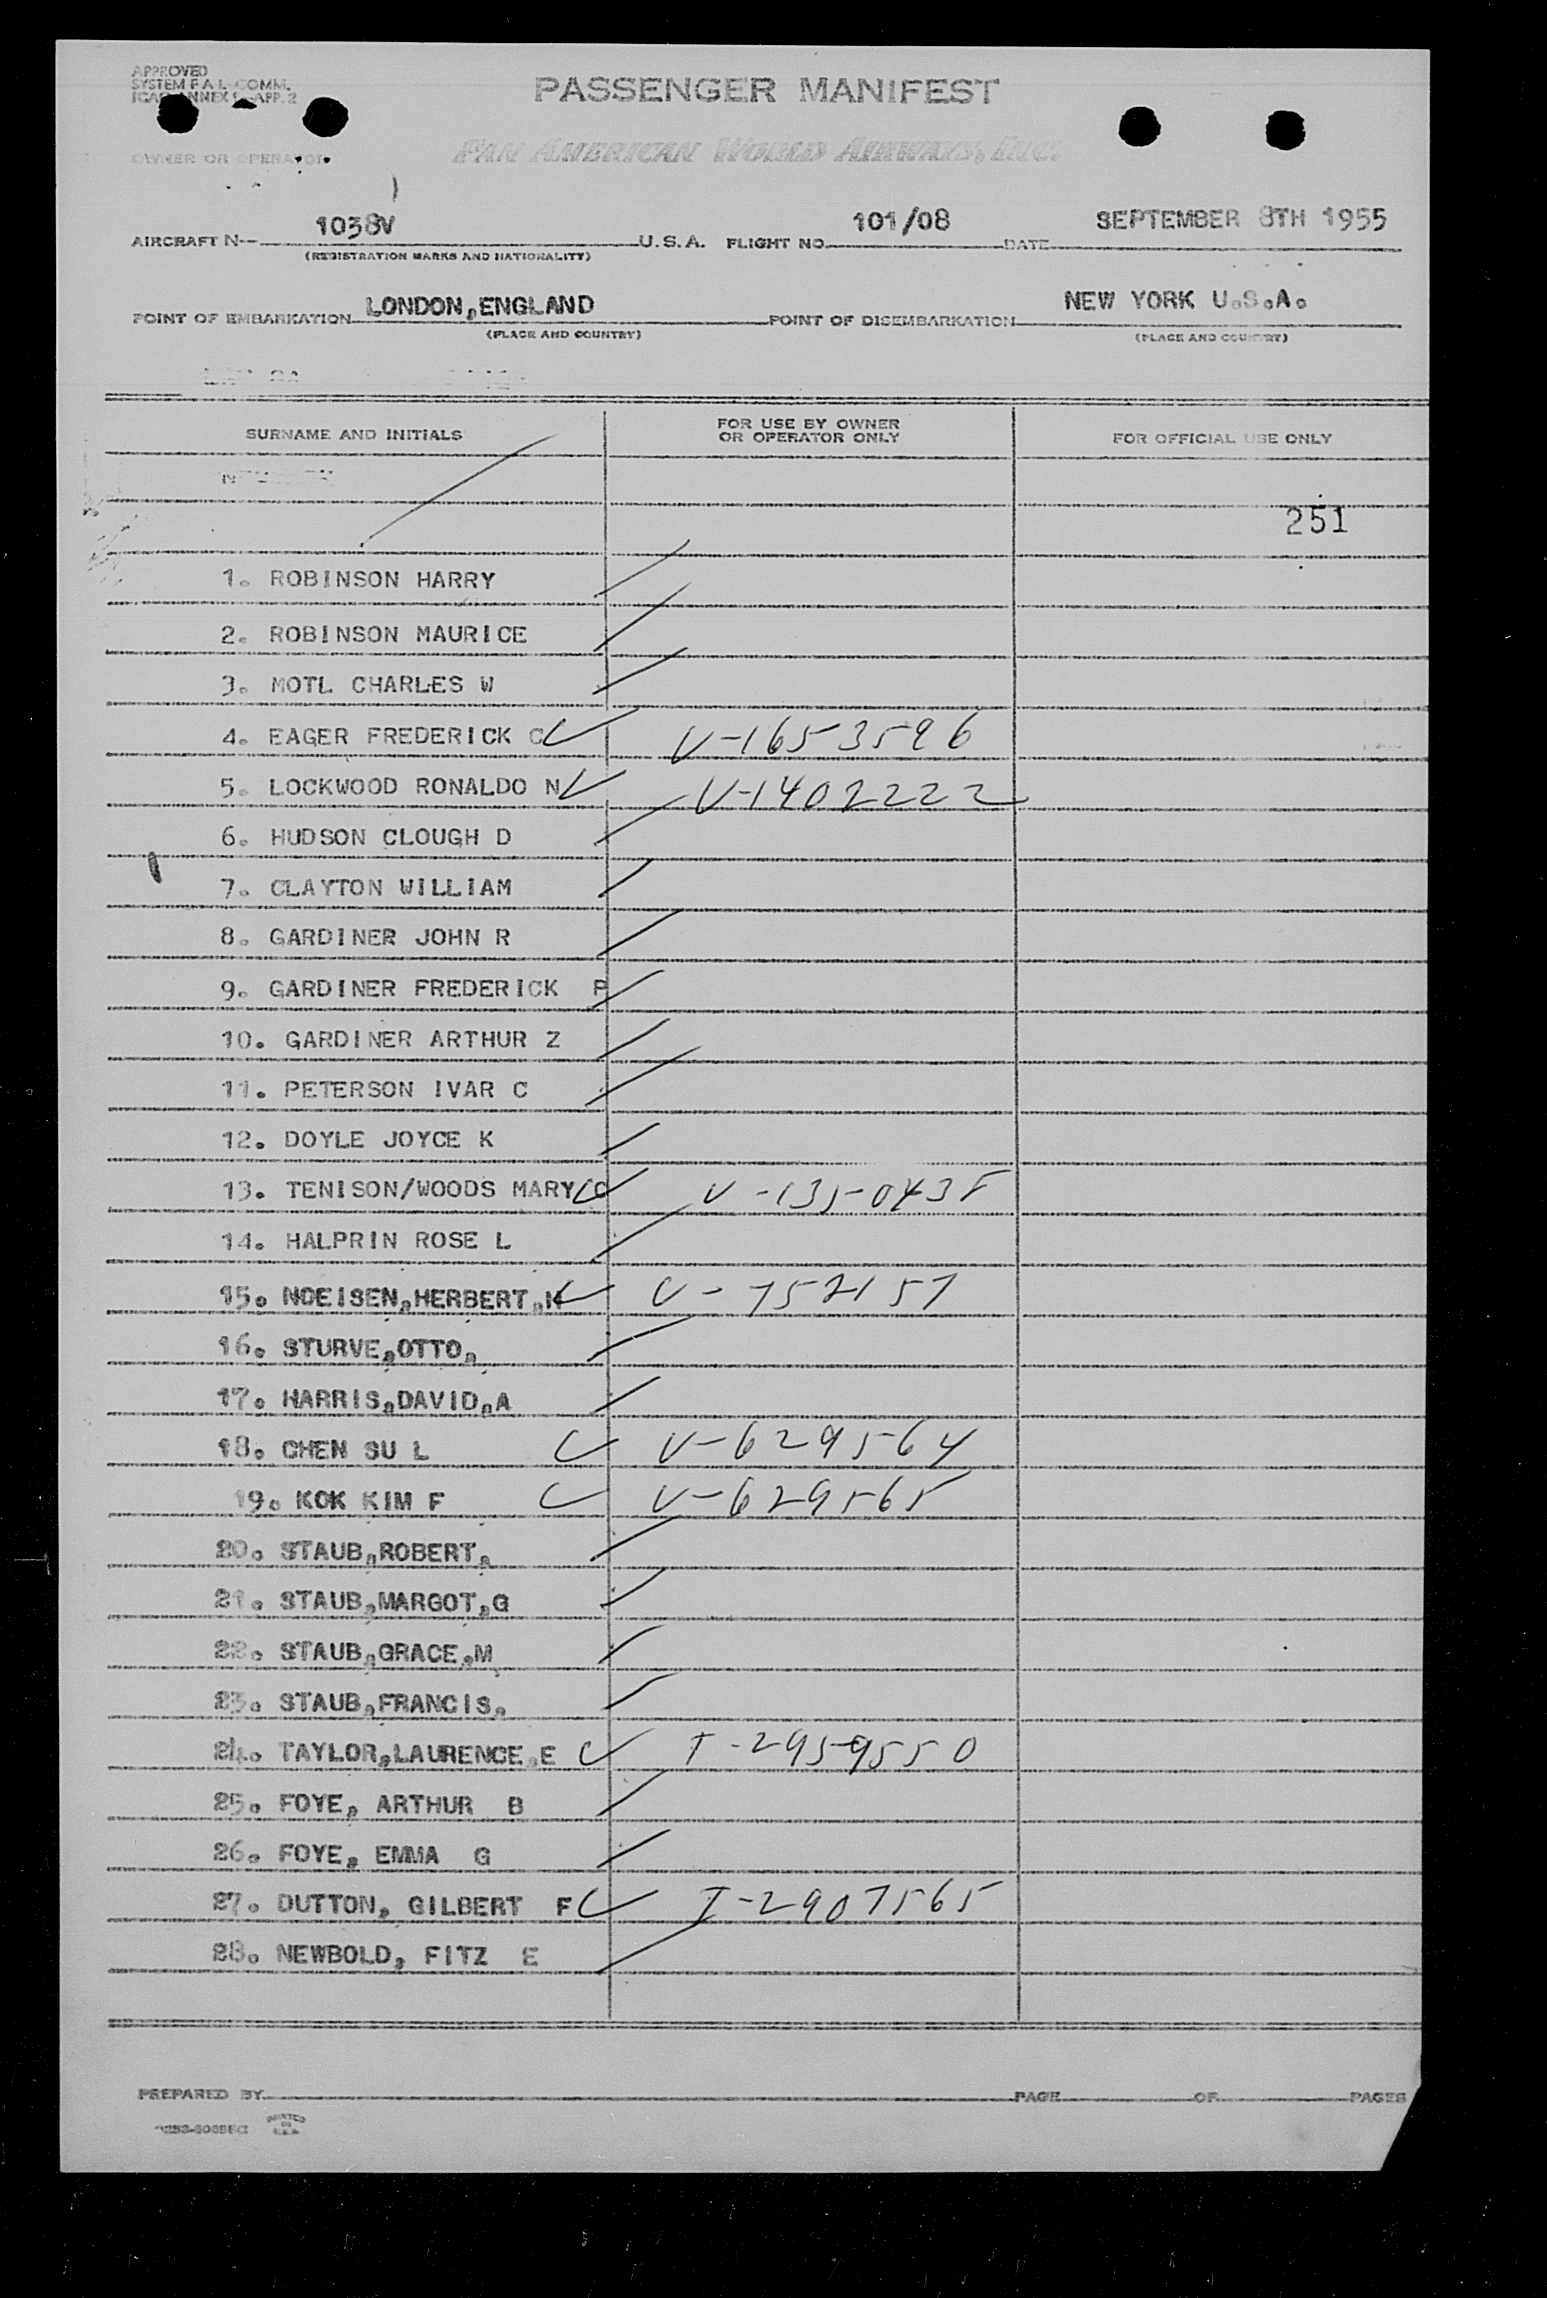 APPROVED
SYSTEM F A L-COMM.
ICAO ANNEX 9-APP. 2
PASSENGER MANIFEST
OWNER OR OPERATOR
PAN AMERICAN WORLD AIRWAYS, INC.
AIRCRAFT N-- 1038V U.S.A. FLIGHT NO. 101/08 DATE SEPTEMBER 8TH 1955
(REGISTRATION MARKS AND NATIONALITY)
POINT OF EMBARKATION LONDON,ENGLAND POINT OF DISEMBARKATION NEW YORK U.S.A.
(PLACE AND COUNTRY) (PLACE AND COUNTRY)
SURNAME AND INITIALS FOR USE BY OWNER OR OPERATOR ONLY FOR OFFICIAL USE ONLY
251
1. ROBINSON HARRY
2. ROBINSON MAURICE
3. MOTL CHARLES W
4. EAGER FREDERICK C V-1653596
5. LOCKWOOD RONALDO N V-1402222
6. HUDSON CLOUGH D
7. CLAYTON WILLIAM
8. GARDINER JOHN R
9. GARDINER FREDERICK P
10. GARDINER ARTHUR Z
11. PETERSON IVAR C
12. DOYLE JOYCE K
13. TENISON/WOODS MARY C
14. HALPRIN ROSE L
15. NOEISEN,HERBERT,K V-752157
16. STURVE,OTTO,
17. HARRIS,DAVID,A
18. CHEN SU L V-629564
19. KOK KIM F V-629565
20. STAUB,ROBERT,
21. STAUB,MARGOT,G
22. STAUB,GRACE,M
23. STAUB,FRANCIS,
24. TAYLOR,LAURENCE,E I-2959550
25. FOYE, ARTHUR B
26. FOYE, EMMA G
27. DUTTON, GILBERT F I-2907565
28. NEWBOLD, FITZ E
PREPARED BY PAGE OF PAGES
PRINTED
IN
U.S.A.